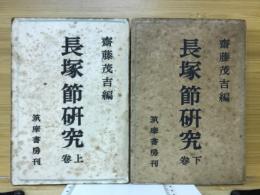 齋藤茂吉編
長塚節研究
上卷
筑摩書房刊
齋藤茂吉編
長塚節研究
下卷
筑摩書房刊